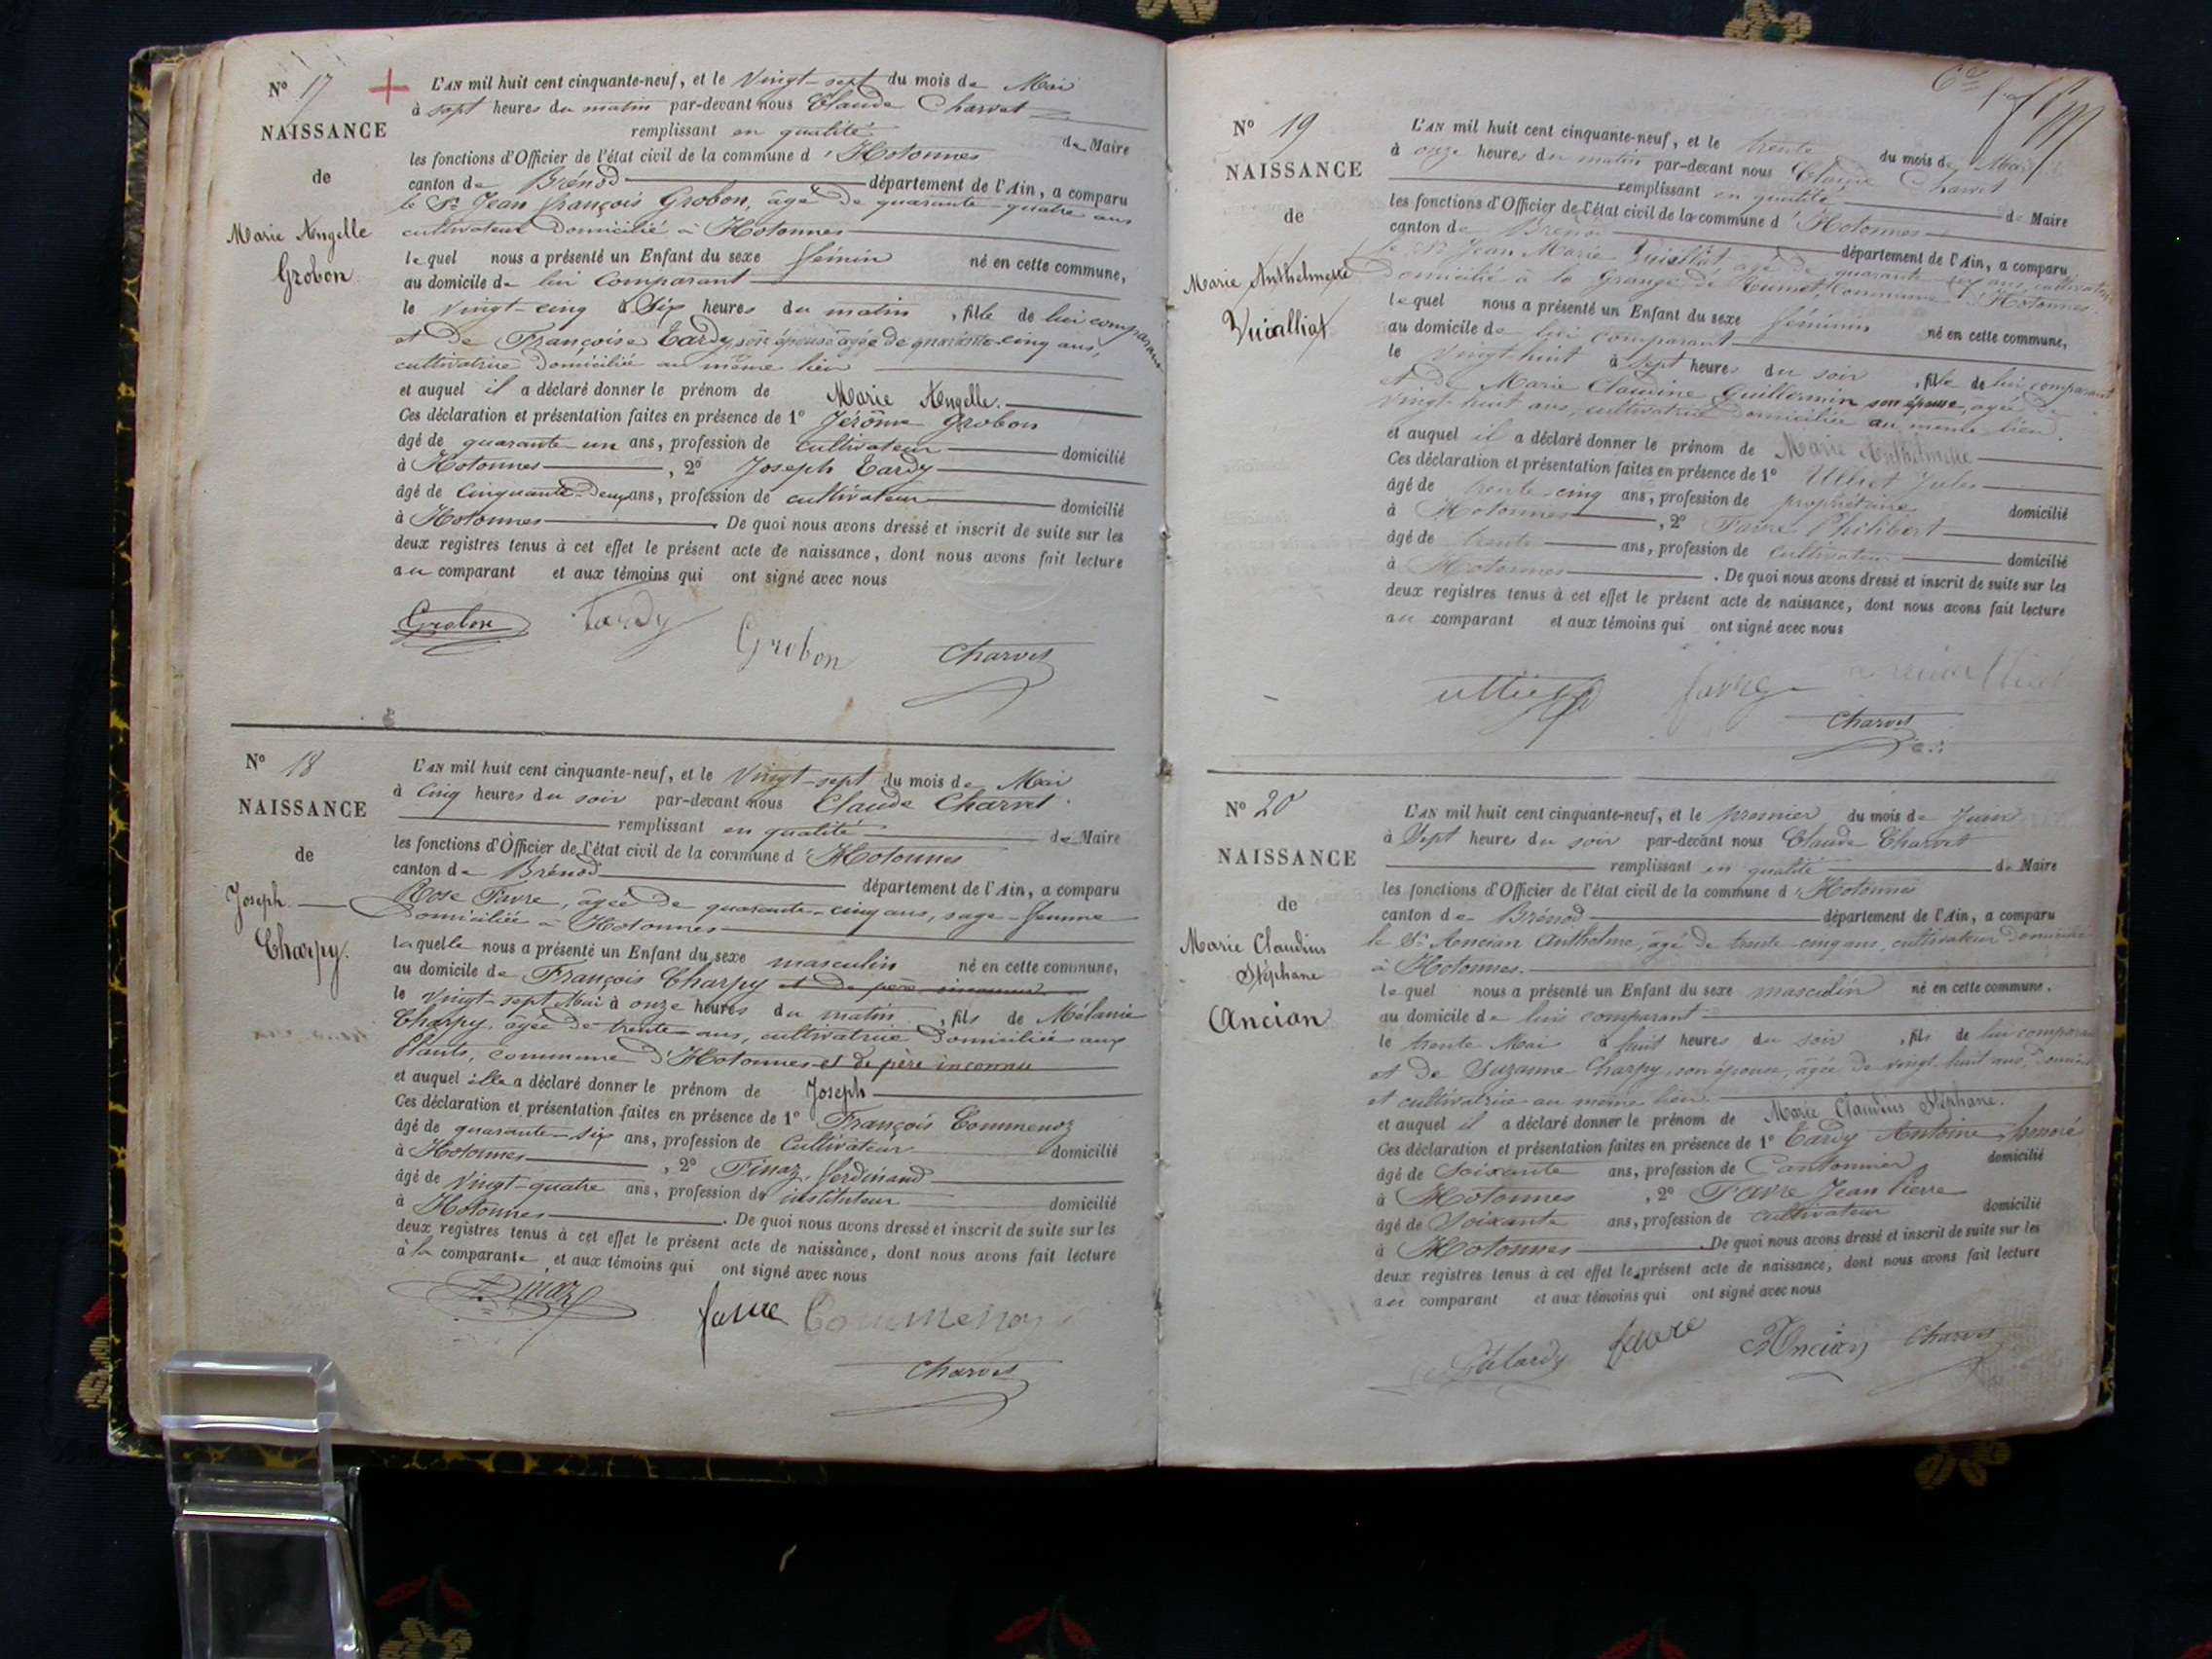 N° 17
NAISSANCE
de
Marie Angelle
Grobon
L'AN mil huit cent cinquante-neuf, et le Vingt-sept du mois de Mai
à sept heures du matin par-devant nous Claude Charvet
remplissant en qualité de Maire
les fonctions d'Officier de l'état civil de la commune d'Hotonnes
canton de Brénod département de l'Ain, a comparu
le Sr Jean françois Grobon, âgé de quarante-quatre ans
cultivateur domicilié à Hotonnes
lequel nous a présenté un Enfant du sexe féminin né en cette commune,
au domicile de lui comparant
le vingt-cinq à Six heures du matin, fille de lui comparant
et de Françoise Tardy, son épouse âgée de quarante-cinq ans,
cultivatrice domiciliée au même lieu
et auquel il a déclaré donner le prénom de Marie Angelle.
Ces déclaration et présentation faites en présence de 1° Jérôme Grobon
âgé de quarante-un ans, profession de cultivateur domicilié
à Hotonnes, 2° Joseph Tardy
âgé de Cinquante-deux ans, profession de cultivateur domicilié
à Hotonnes. De quoi nous avons dressé et inscrit de suite sur les
deux registres tenus à cet effet le présent acte de naissance, dont nous avons fait lecture
au comparant et aux témoins qui ont signé avec nous
Grobon Tardy Grobon Charvet
N° 18
NAISSANCE
de
Joseph
Charpy.
L'AN mil huit cent cinquante-neuf, et le Vingt-sept du mois de Mai
à Cinq heures du soir par-devant nous Claude Charvet.
remplissant en qualité de Maire
les fonctions d'Officier de l'état civil de la commune d'Hotonnes
canton de Brénod département de l'Ain, a comparu
Rose Favre, âgée de quarante-cinq ans, sage-femme
domiciliée à Hotonnes
laquelle nous a présenté un Enfant du sexe masculin né en cette commune,
au domicile de François Charpy et de père inconnu
le vingt-sept Mai à onze heures du matin, fils de Mélanie
Charpy, âgée de trente ans, cultivatrice domiciliée aux
Plants, commune d'Hotonnes et de père inconnu
et auquel elle a déclaré donner le prénom de Joseph
Ces déclaration et présentation faites en présence de 1° François Commenoz
âgé de quarante-six ans, profession de Cultivateur domicilié
à Hotonnes, 2° Finaz, ferdinand
âgé de Vingt-quatre ans, profession de instituteur domicilié
à Hotonnes. De quoi nous avons dressé et inscrit de suite sur les
deux registres tenus à cet effet le présent acte de naissance, dont nous avons fait lecture
à la comparante et aux témoins qui ont signé avec nous
Finaz favre Commenoz
Charvet
N° 19
NAISSANCE
de
Marie Anthelmette
Vuialliat
L'AN mil huit cent cinquante-neuf, et le trente du mois de Mai
à onze heures du matin par-devant nous Claude Charvet
remplissant en qualité de Maire
les fonctions d'Officier de l'état civil de la commune d'Hotonnes
canton de Brénod département de l'Ain, a comparu
le Sr Jean Marie Vuialliat âgé de quarante-six ans, cultivateur
domicilié à la Grange de Commune d'Hotonnes.
lequel nous a présenté un Enfant du sexe féminin né en cette commune,
au domicile de lui comparant
le vingt-huit à Sept heures du soir, fille de lui comparant
et de Marie Claudine Guillermin son épouse, âgée de
vingt-huit ans, cultivatrice domiciliée au même lieu.
et auquel il a déclaré donner le prénom de Marie Anthelmette
Ces déclaration et présentation faites en présence de 1° Ulliet Jules
âgé de trente-cinq ans, profession de propriétaire domicilié
à Hotonnes, 2° Favre Philibert
âgé de trente ans, profession de Cultivateur domicilié
à Hotonnes. De quoi nous avons dressé et inscrit de suite sur les
deux registres tenus à cet effet le présent acte de naissance, dont nous avons fait lecture
au comparant et aux témoins qui ont signé avec nous
Ulliet favre
Charvet
N° 20
NAISSANCE
de
Marie Claudius
Stéphane
Ancian
L'AN mil huit cent cinquante-neuf, et le premier du mois de Juin
à Sept heures du soir par-devant nous Claude Charvet
remplissant en qualité de Maire
les fonctions d'Officier de l'état civil de la commune d'Hotonnes
canton de Brénod département de l'Ain, a comparu
le Sr Ancian Anthelme, âgé de trente-cinq ans, cultivateur domicilié
à Hotonnes.
lequel nous a présenté un Enfant du sexe masculin né en cette commune.
au domicile de lui comparant
le trente Mai à huit heures du soir, fils de lui comparant
et de Suzanne Charpy son épouse, âgée de vingt-huit ans,
et cultivatrice au même lieu.
et auquel il a déclaré donner le prénom de Marie Claudius Stéphane.
Ces déclaration et présentation faites en présence de 1° Tardy Antoine honoré
âgé de Soixante ans, profession de Cantonnier domicilié
à Hotonnes, 2° Favre Jean Pierre
âgé de Soixante ans, profession de cultivateur domicilié
à Hotonnes. De quoi nous avons dressé et inscrit de suite sur les
deux registres tenus à cet effet le présent acte de naissance, dont nous avons fait lecture
au comparant et aux témoins qui ont signé avec nous
favre Ancian Charvet